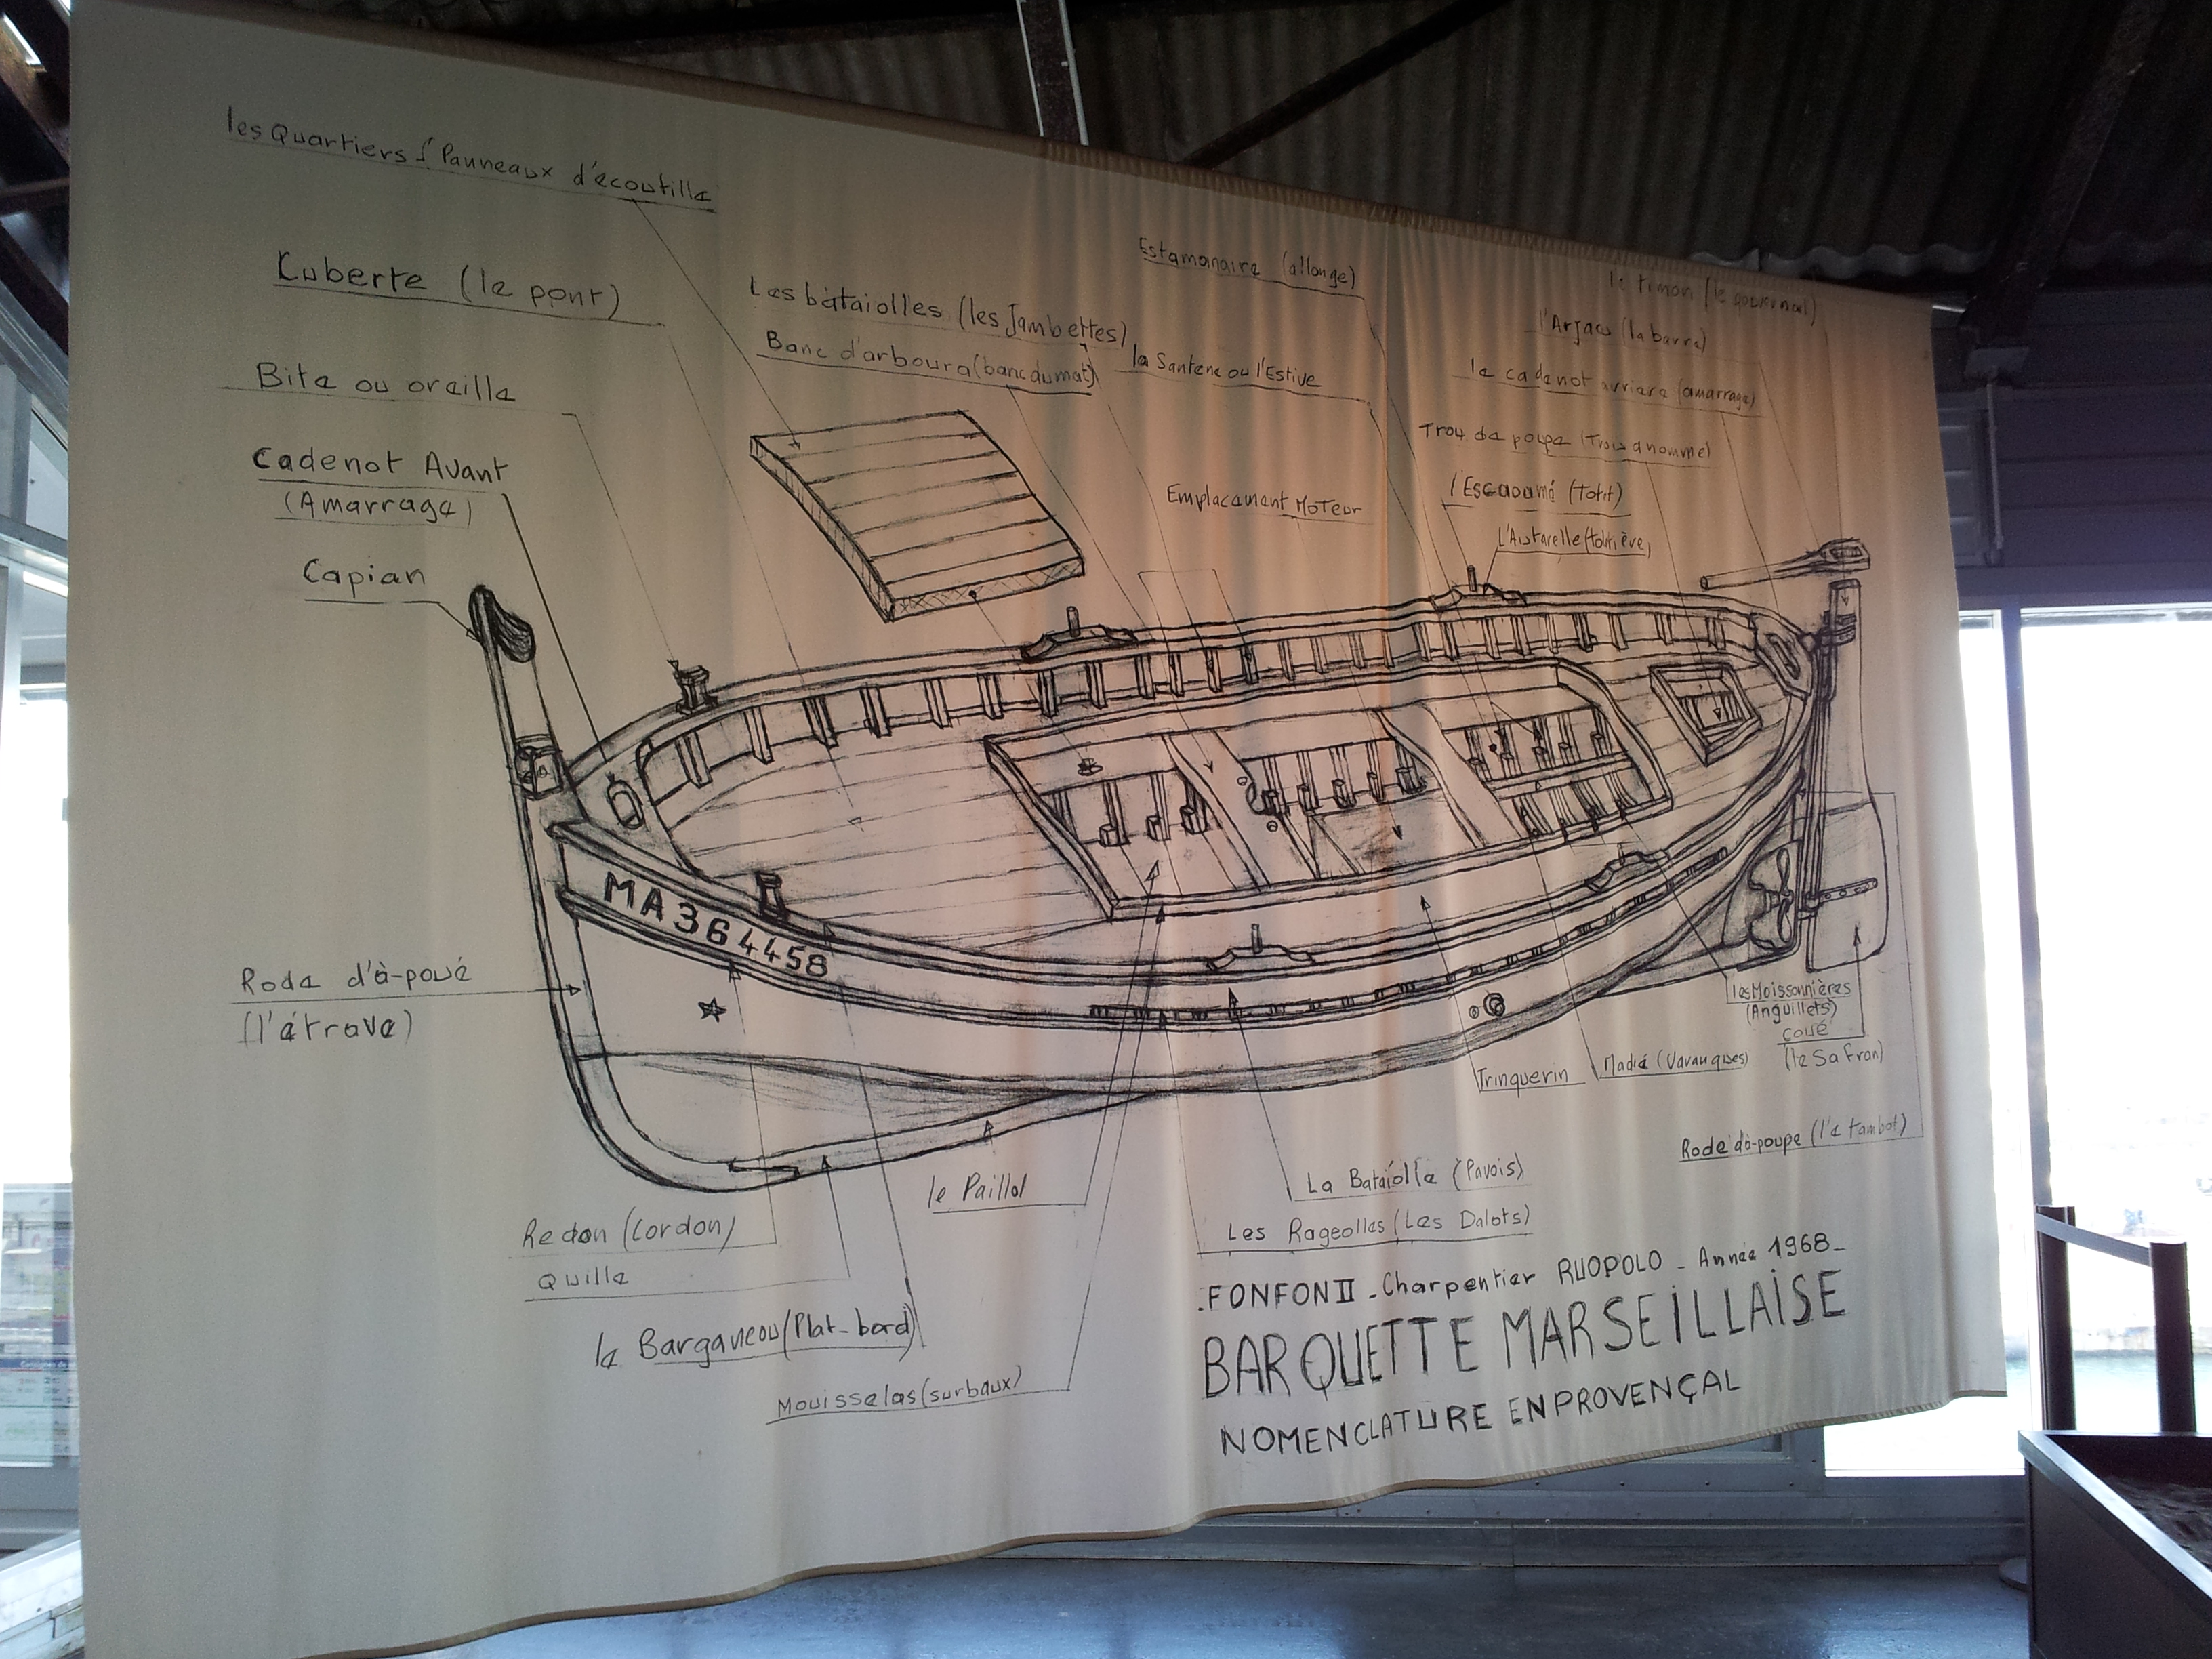 les Quartiers / Panneaux d'écoutille
Cuberte (le pont)
Bite ou oreille
Cadenot Avant
(Amarrage)
Capian
Les bataiolles (les Jambettes)
Banc d'arboura (banc du mat)
Estamanaire (allonge)
la Santene ou l'Estive
Emplacement MoTeur
le timon (le gouvernail)
l'Arjaou (la barre)
le cadenot arriere (amarrage)
Trou de poupe (Trou d'homme)
l'Escaoumé (Tolet)
L'Austarelle (toletière)
MA364458
Rode d'à-poué
(l'étrave)
les Moissonnières
(Anguillets)
coué
(le Safran)
Trinquerin
Madié (Varangues)
Rode dà-poupe (l'e tambot)
le Paillol
La Bataiolle (Pavois)
Les Rageolles (Les Dalots)
Redon (Cordon)
Quille
le Barganeou (Plat-bord)
Mouisselas (surbaux)
.FONFON II - Charpentier RUOPOLO - Année 1968-
BARQUETTE MARSEILLAISE
NOMENCLATURE EN PROVENÇAL